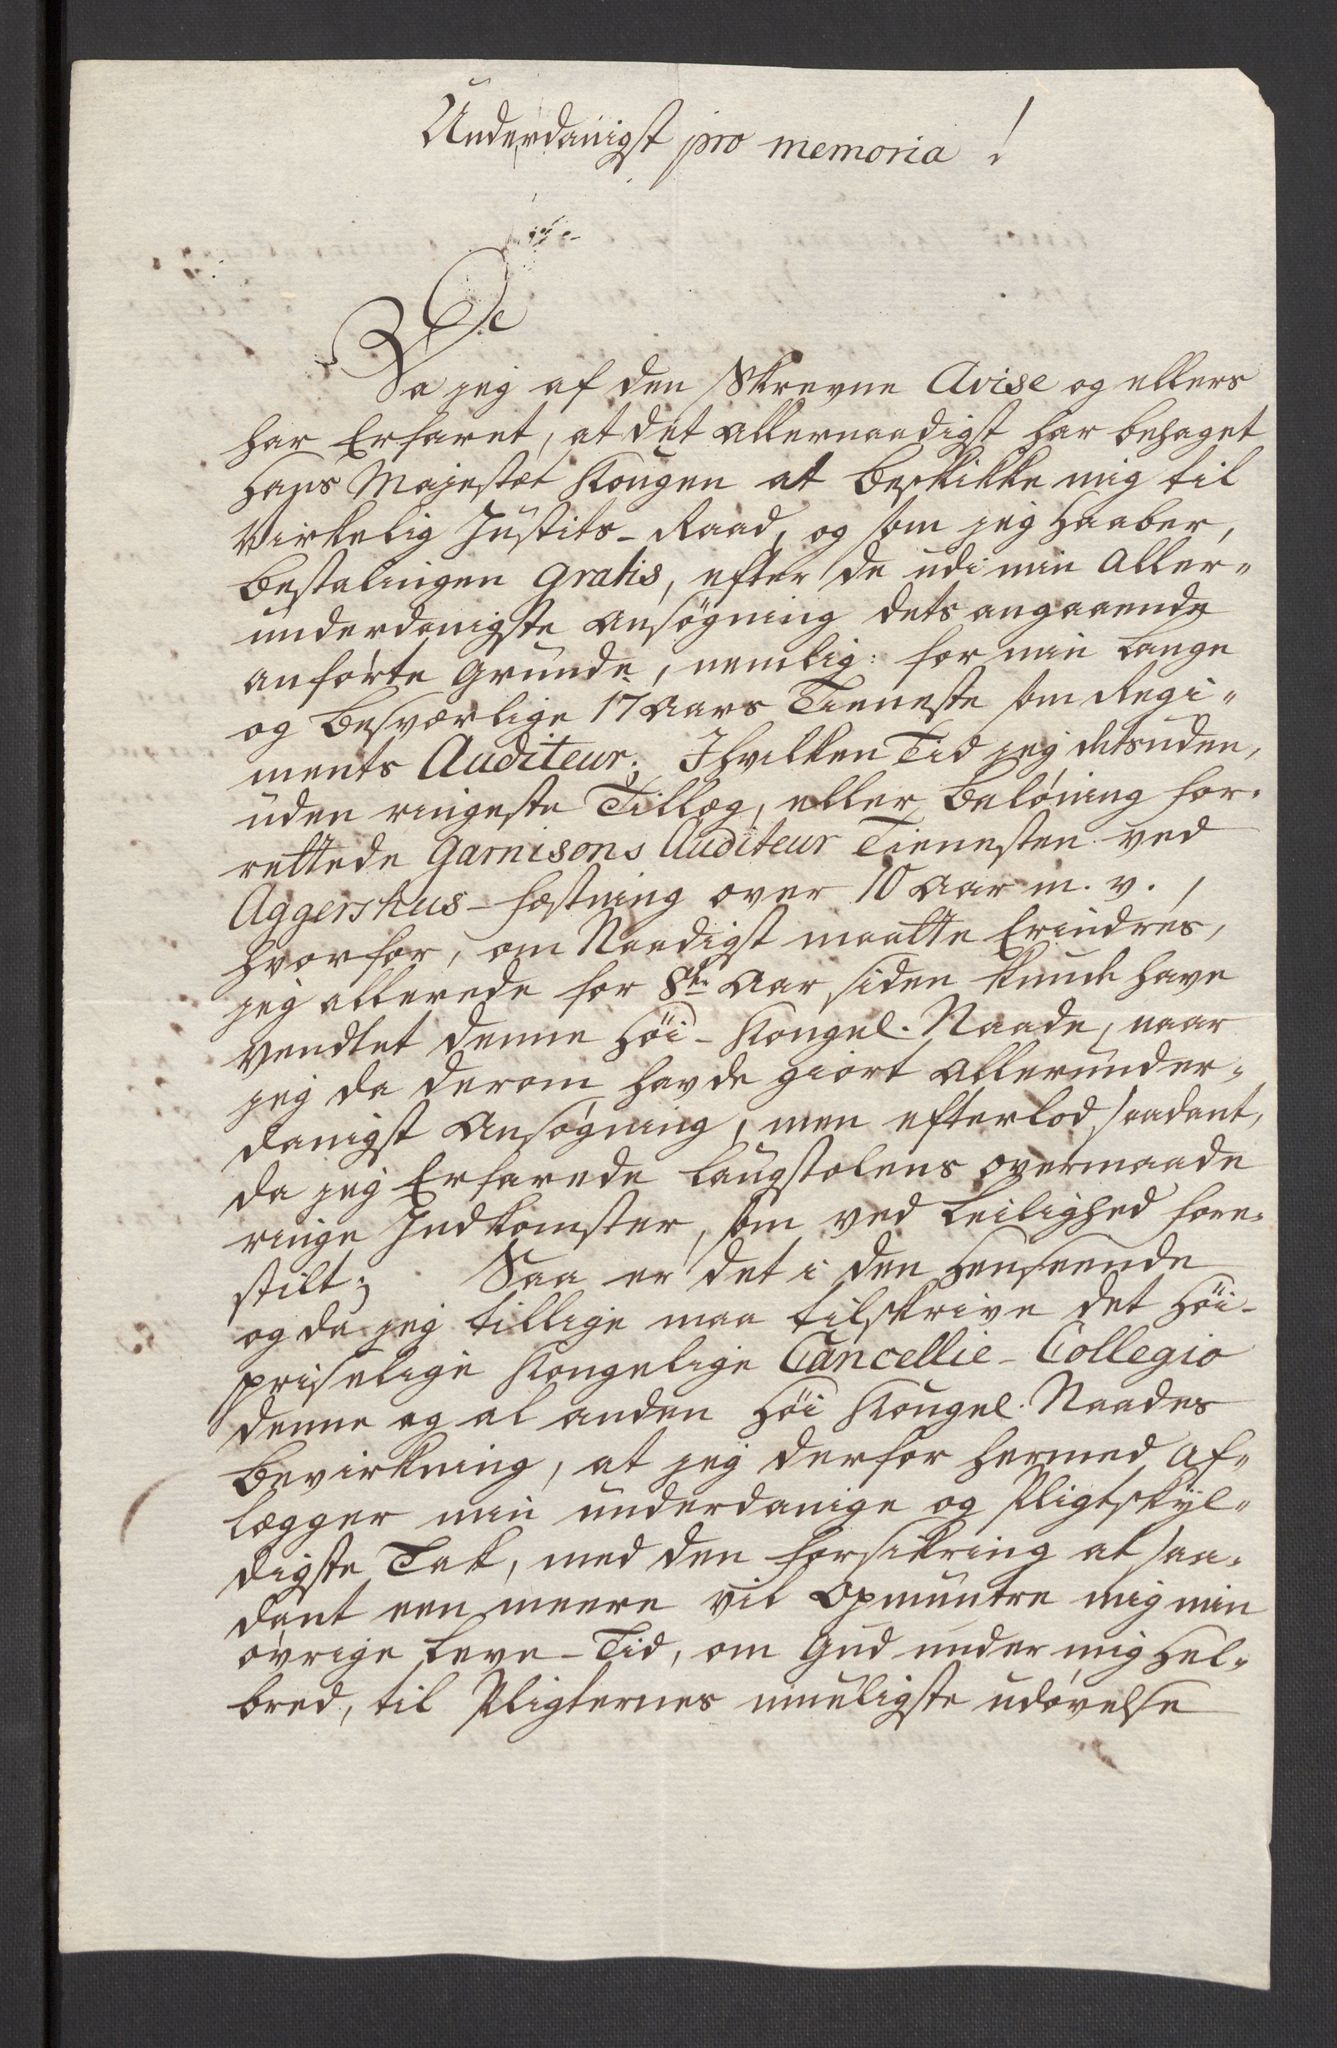 Underdanigst pro memoria!
Da jeg af den Skrevne Avise og ellers
har Erfaret, at det allernaadigst har behaget
Hans Majestæt Kongen at beskikke mig til
Virkelig Justits-Raad, og som jeg Haaber,
bestalingen gratis, efter de udi min Aller-
underdanigste Ansøgning dets angaaende
anførte Grunde, nemlig: for min Lange
og besværlige 17 Aars Tieneste som Regi-
ments Auditeur; I hvilken Tid jeg detsuden,
uden ringeste Tillæg, eller belöning for-
rettede Garnisons Auditeur Tienesten ved
Aggershus-fæstning over 10 Aar m. v.,
hvorfor, om Naadigst maatte Erindres,
jeg allerede for 8te Aar siden kunde have
Ventet denne Höi-Kongel. Naade, naar
jeg da derom havde giort Allerunder-
danigst Ansøgning, men efterlod saadant,
da jeg Erfarede Laugstolens overmaade
ringe Indkomster, som ved Leilighed fore-
stilt; Saa er det i den Henseende
og da jeg tillige maa tilskrive det Höi-
priselige Kongelige Cancellie-Collegio
denne og al anden Höi Kongel. Naades
Bevirkning, at jeg derfor hermed Af-
lægger min underdanige og Pligtskyl-
digste Tak, med den forsikring at saa-
dant een meere vil Opmuntre mig min
øvrige Leve-Tid, om Gud under mig Hel-
bred, til Pligternes mueligste udøvelse